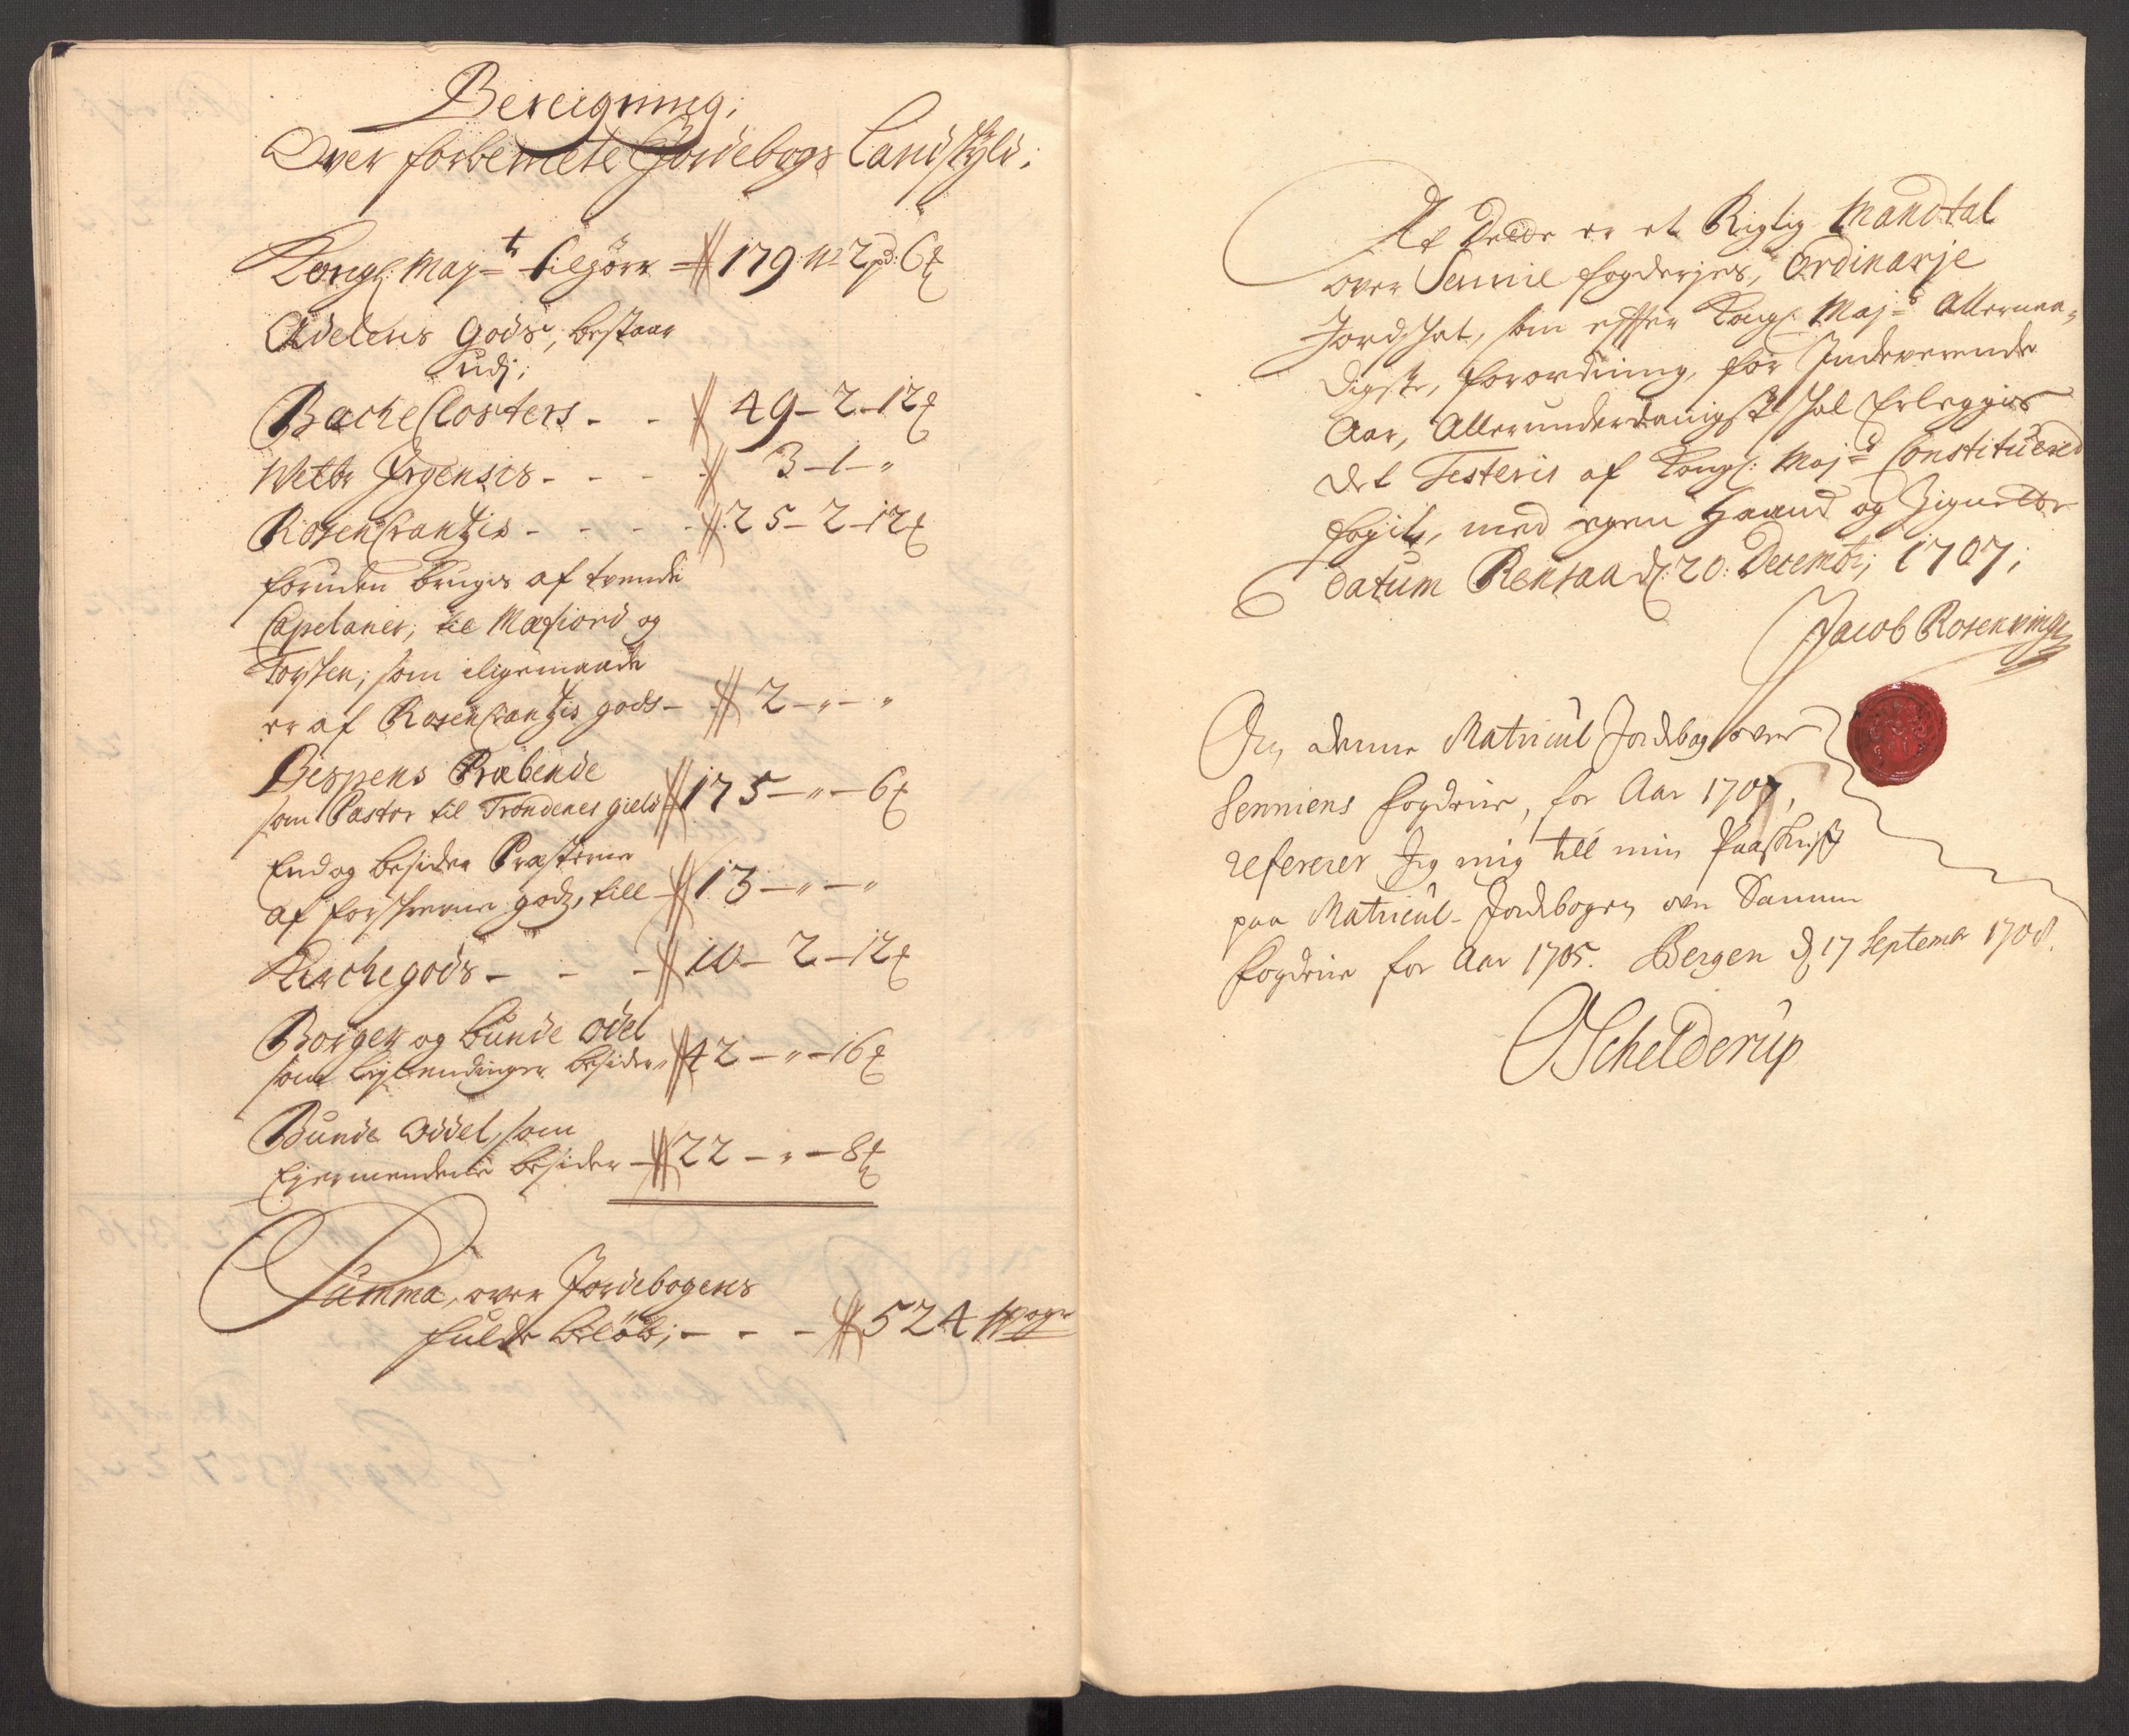 Bereigning,
Over forbemelte Jordebogs Landskyld;
Kongl: Maytt tilhører 179 W 2 pd: 6
Adelens Gods, bestaar
udj;
Bache Closters - - 49 - 2 - 12
Mette Jrgensis - - - 3 - 1 - "
Rosenkrantzis - - - - 25 - 2 - 12
foruden bruges af tvende
Capelaner, til Mefiord og
Torsken; som iligemaade
er af Rosenkrantzis gods - 2 - " - "
Bespens Præbende
som Pastor til Trondenes gield 175 - " - 6
End og besider Præsterne
af forskrefne godz, till - 13 - " - "
Kirchegods - - - 10 - 2 - 12
Borger og Bunde Odel
som besider 42 - " - 16
Bunde Oddel, som
Ejermendene besider - 22 - " - 8
Summa, over Jordebogens
fulde beløb; - - - 524 Woger
At Dette er et Rigtig Mandtal
over Sennie fogderjes, Ordinarje
Jordskat, som efter Kongl: Majts Allernaa-
digste, forordning, for Indeverende
Aar, Allerunderdanigst skal Erleggis
det Testeris af Kongl: Majts Constituered
fogit, med egen Haand og Signette
Datum Rensaa d: 20: Decembr; 1707;
Jacob Rosenvinge
Om denne Matricul Jordebog over
Senniens fogderie, for Aar 1707,
refererer Jeg mig till min Paaskrift
paa Matricul-Jordebogen over Samme
fogderie for Aar 1705. Bergen d 17 Septembr 1708.
Schelderup